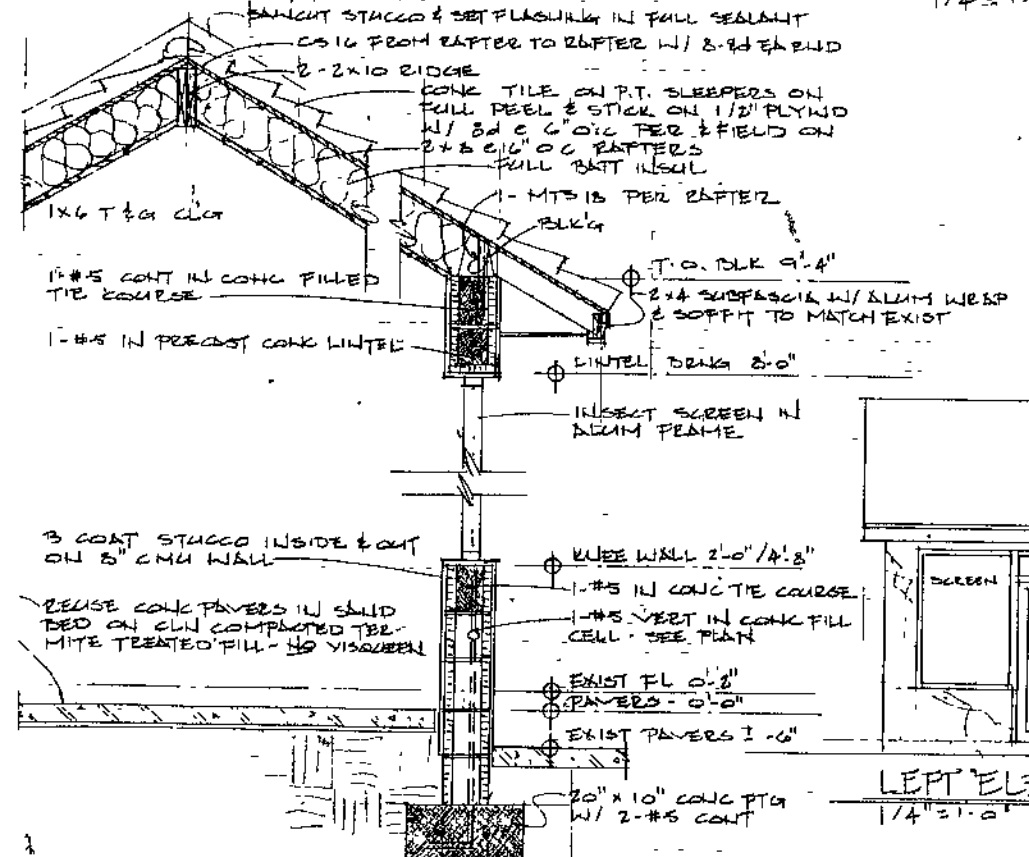 SAWCUT STUCCO & SET FLASHING IN FULL SEALANT
CS16 FROM RAFTER TO RAFTER W/ 8-8d EA END
2-2x10 RIDGE
CONC TILE ON P.T. SLEEPERS ON
FULL PEEL & STICK ON 1/2" PLYWD
W/ 8d @ 6" O.C PER & FIELD ON
2x8 @ 16" OC RAFTERS
FULL BATT INSUL
1x6 T&G CLG
1- MTS 18 PER RAFTER
BLK'G
1-#5 CONT IN CONC FILLED
TIE COURSE
T.O. BLK 9'-4"
2x4 SUBFASCIA W/ ALUM WRAP
& SOFFIT TO MATCH EXIST
1-#5 IN PRECAST CONC LINTEL
LINTEL BRNG 8'-0"
INSECT SCREEN IN
ALUM FRAME
3 COAT STUCCO INSIDE & OUT
ON 8" CMU WALL
KNEE WALL 2'-0"/4'-8"
1-#5 IN CONC TIE COURSE
SCREEN
REUSE CONC PAVERS IN SAND
BED ON CLN COMPACTED TER-
MITE TREATED FILL - NO VISQUEEN
1-#5 VERT IN CONC FILL
CELL - SEE PLAN
EXIST FL 0'-2"
PAVERS - 0'-0"
EXIST PAVERS ± -6"
20" x 10" CONC FTG
W/ 2-#5 CONT
LEFT ELE
1/4"=1'-0"